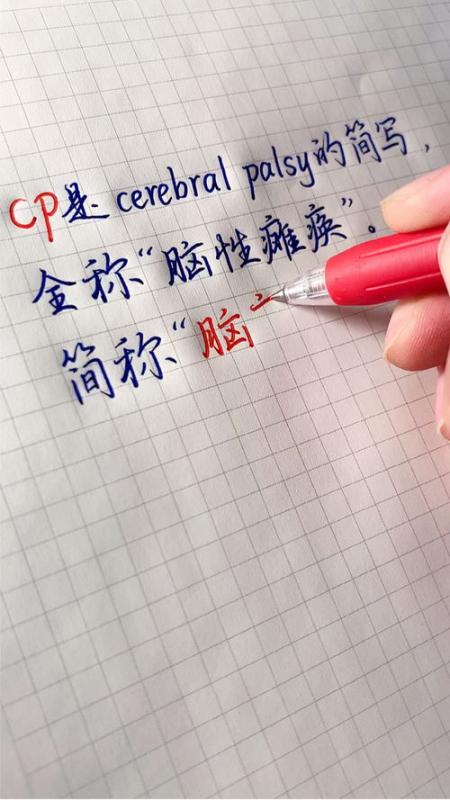 CP是cerebral palsy的简写，
全称“脑性瘫痪”。
简称“脑